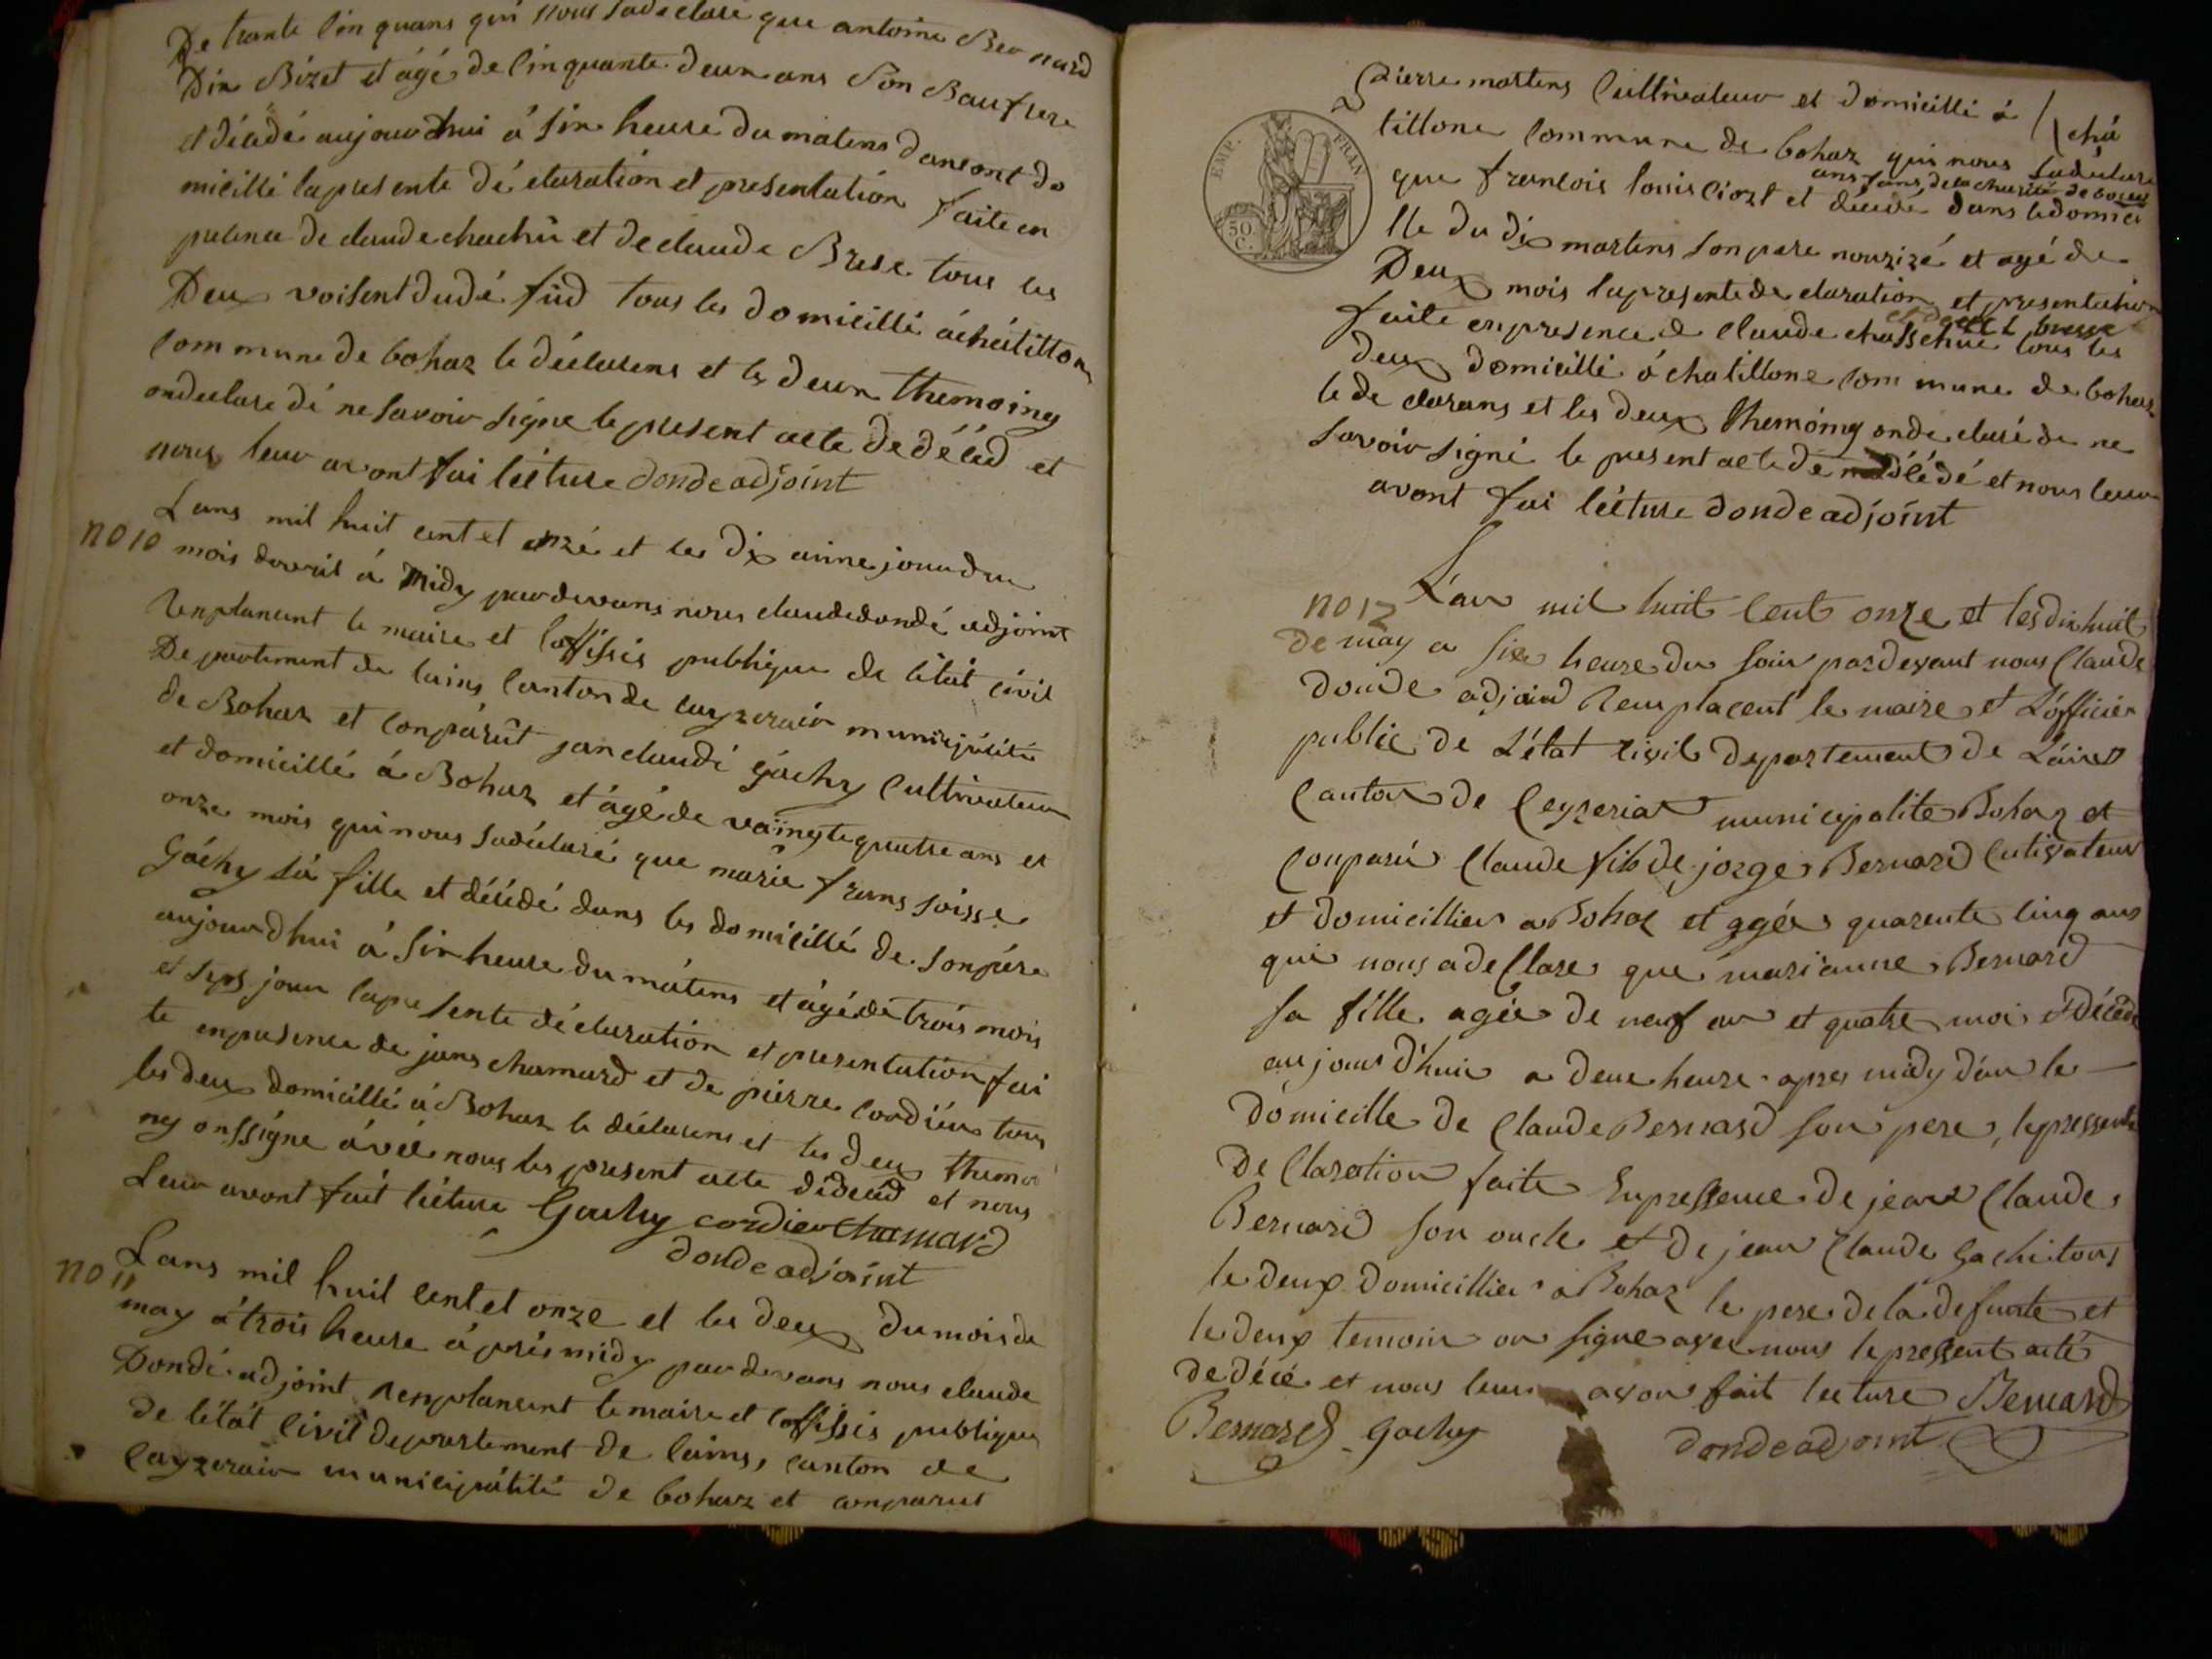 De trante cin quans qui nous sadeclare que antoine Bernard
Dix Bizet et agé de cinquante deux ans Son Bauf frere
et décédé aujourdhui á six heure du matens dan sont do
micillé la presente dé claration et presentation faite en
presence de claude chachü et de claude Brese tous les
Deux voisent dudé füd tous les domicillé á chátitton
commune de bohaz le déclarens et les deux themoing
ondeclare dé ne savoir signe le present acte de décéd et
nous leur avont fai lécture donde adjoint
no 10
Lans mil huit cent et onzé et les dix
mois davril á midy par devans nous claude dondé adjoint
renplansent le maire et loffisis publique de létat civil
Departement de lains canton de cayzerair municipálité
de Bohaz et conparût jan claudé gáchy cultivateur
et domicillé á Bohaz et ágé de vaingte quatre ans et
onze mois qui nous sadéclaré que marie frans soisse
gáchy sá fille et décédé dans les domicillé de son pére
aujourdhui á six heure du mátens et ágé dé trois mois
et sept jour la presente déclaration et presentation fai
te enpresence de jans chamard et de pierre cordier tous
les deux domicillé á Bohaz le déclarens et les deux themoi
ng onssigne ávec nous les present acte dédecéd et nous
Leur avont fait lécture Gachy cordier chamard
donde adjoint
no 11
Lans mil huit cent et onze et les deux du mois de
may á trois heure áprés midy par devans nous claude
Dondé adjoint renplansent le maire et loffisis publique
de létát civil departement de lains, canton de
cayzerair municipálité de bohaz et conparut
EMP. FRAN
50 C.
Pierre martens cultivateur et domicillé á chá
tillone commune de bohaz qui nous sadéclare
que francois louis et décédé dans le domici
lle du dix martens son pere nourizé et agé de
Deux mois la presente de claration et presentation
faite en presence de claude chasschue tous les
deux domicillé á chatillone commune de bohaz
le declarans et les deux themoing onde claré de ne
savoir signé le present acte de décédé et nous leur
avont fai lécture donde adjoint
no 12
L'an mil huit cent onze et les dix huit
de may a six heure du soir pardevant nous Claude
donde adjoind Remplacent le maire et L'officier
public de L'état civil departement de L'áin
canton de Ceyzeriat municipalite Bohaz et
conparu Claude fils de jorge Bernard cultivateur
et domicillier a Bohaz et agée quarente cinq ans
qui nous a declare que marianne Bernard
sa fille agée de neuf an et quatre moi et Décede
aujourd'hui a deux heure apres midy dan le
domicille de Claude Bernard son pere, le pressente
De Claration faite En pressence de jean Claude
Bernard son oncle et de jean Claude gachi tous
le deux domicillier a Bohaz le pere de la defunte et
le deux temoin on signe avec nous le pressent acte
de décé et nous leur avon fait lecture Bernard
Bernard Gachy donde adjoint